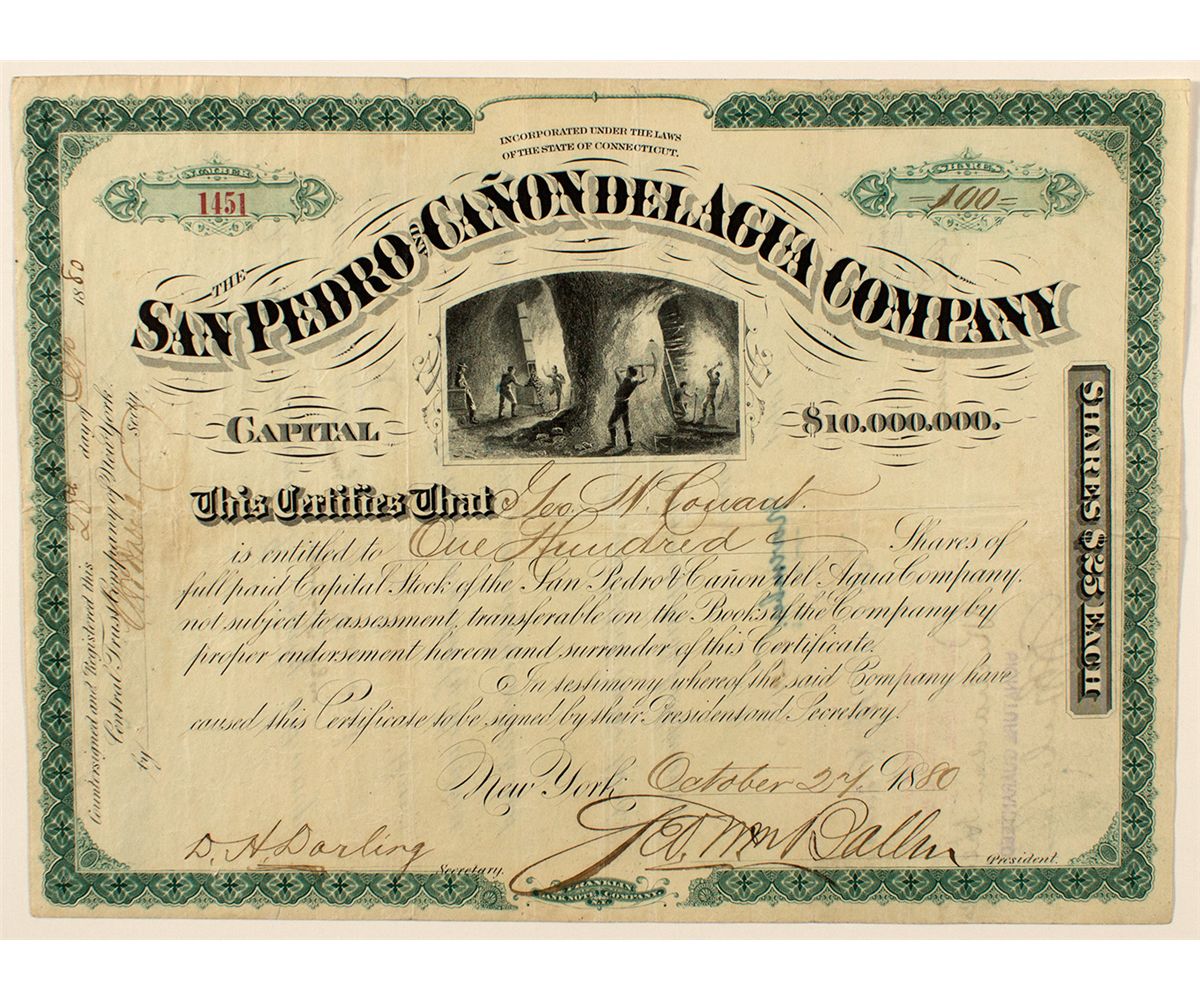 INCORPORATED UNDER THE LAWS
OF THE STATE OF CONNECTICUT.
NUMBER
1451
SHARES
100
THE
SAN PEDRO AND CAÑON DEL AGUA COMPANY
CAPITAL
$10.000.000.
This Certifies That Geo W. Conant
is entitled to One Hundred Shares of
full paid Capital Stock of the San Pedro & Cañon del Agua Company.
not subject to assessment, transferable on the Books of the Company by
proper endorsement hereon and surrender of this Certificate.
In testimony whereof the said Company have
caused this Certificate to be signed by their President and Secretary.
New York, October 27 1880
D. H. Darling
Secretary.
Geo. Wm Ballou
President.
FRANKLIN
BANK NOTE COMPANY
N.Y.
SHARES $25 EACH
Countersigned and Registered this 28th day of 1880
Central Trust Company of New york.
by Secty
SIGNATURE GUARANTEED